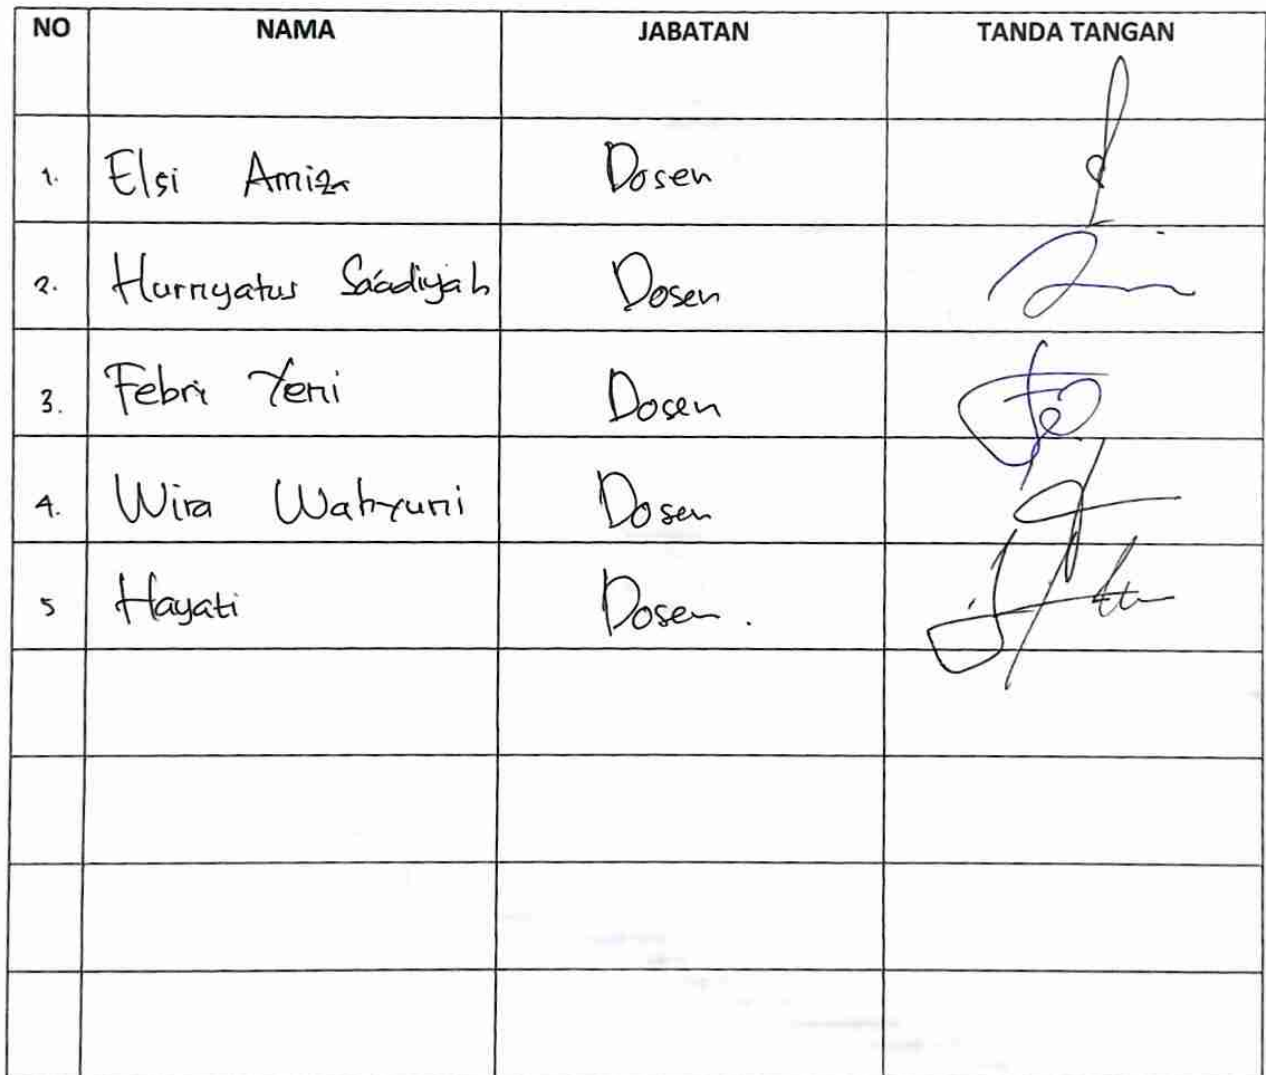 NO NAMA JABATAN TANDA TANGAN
1. Elsi Amiza Dosen
2. Hurriyatus Sa'adiyah Dosen
3. Febri Yeni Dosen
4. Wira Wahyuni Dosen
5 Hayati Dosen.